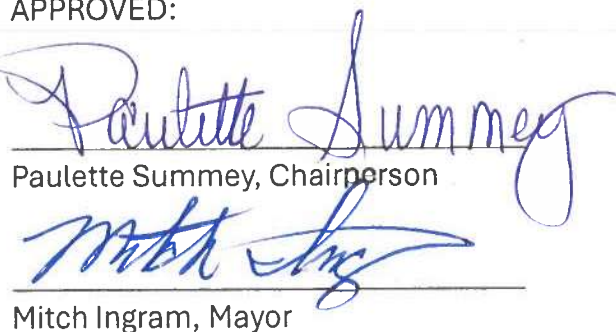 APPROVED:
Paulette Summey
Paulette Summey, Chairperson
Mitch Ing
Mitch Ingram, Mayor